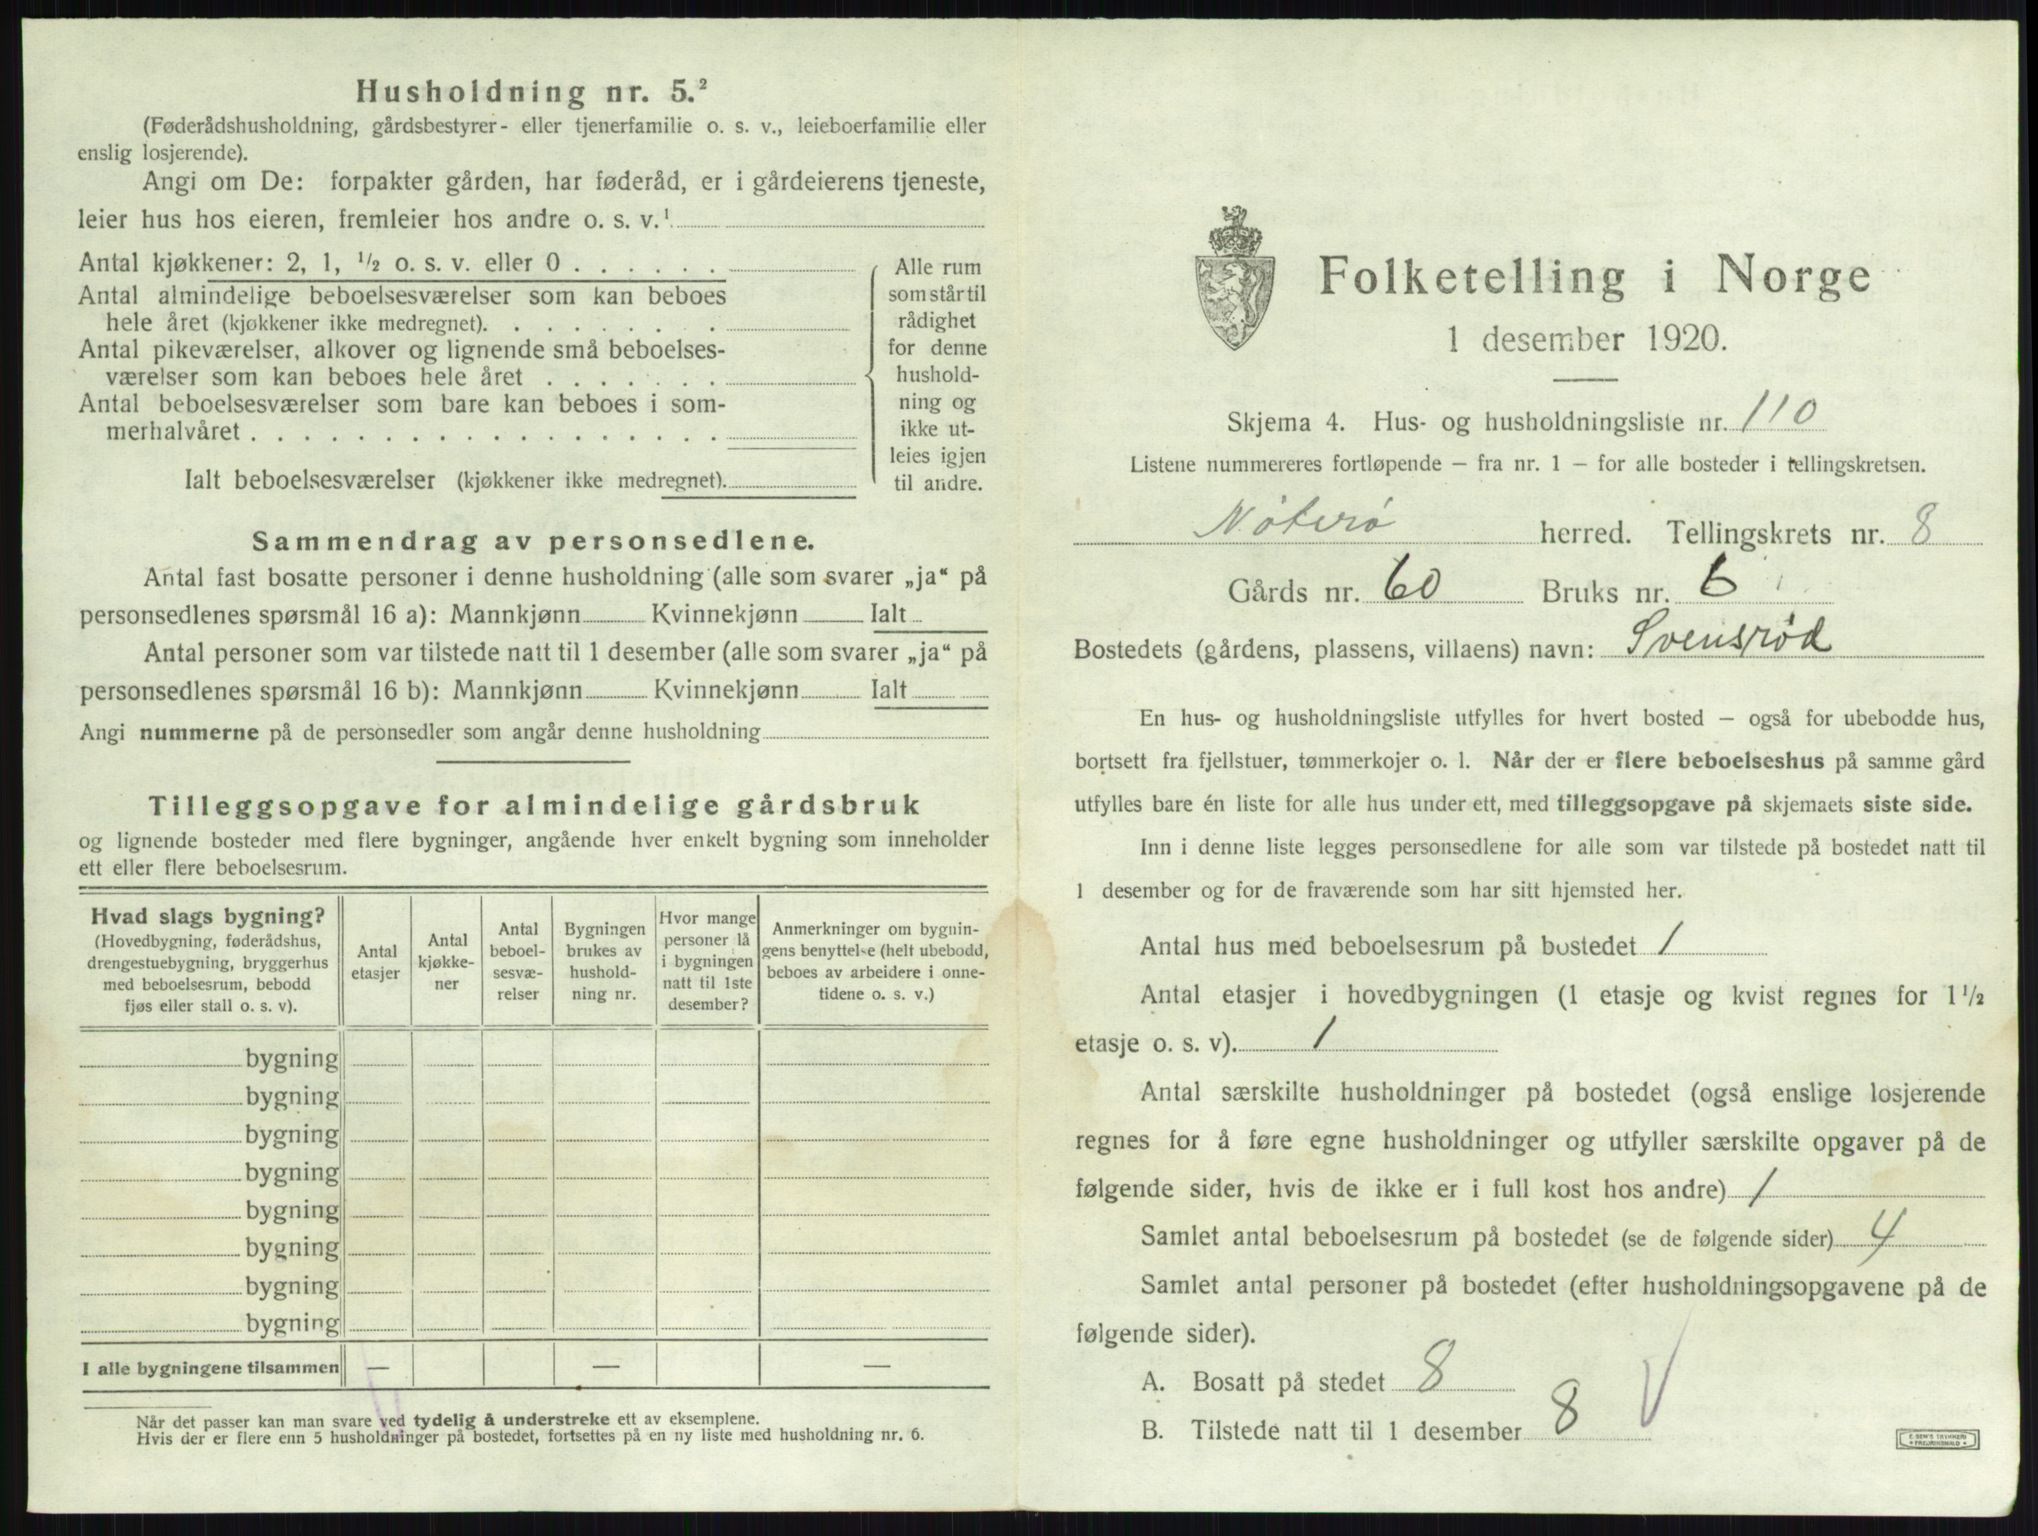 Husholdning nr. 5.²
(Føderådshusholdning, gårdsbestyrer- eller tjenerfamilie o. s. v., leieboerfamilie eller
enslig losjerende).
Angi om De: forpakter gården, har føderåd, er i gårdeierens tjeneste,
leier hus hos eieren, fremleier hos andre o. s. v.¹
Antal kjøkkener: 2, 1, ½ o. s. v. eller 0 . . . . . .
Antal almindelige beboelsesværelser som kan beboes
hele året (kjøkkener ikke medregnet). . . . . . . .
Antal pikeværelser, alkover og lignende små beboelses-
værelser som kan beboes hele året . . . . . . .
Antal beboelsesværelser som bare kan beboes i som-
merhalvåret . . . . . . . . . . . . . . . . . .
Ialt beboelsesværelser (kjøkkener ikke medregnet).
Alle rum
som står til
rådighet
for denne
hushold-
ning og
ikke ut-
leies igjen
til andre.
Sammendrag av personsedlene.
Antal fast bosatte personer i denne husholdning (alle som svarer „ja“ på
personsedlenes spørsmål 16 a): Mannkjønn Kvinnekjønn Ialt
Antal personer som var tilstede natt til 1 desember (alle som svarer „ja“ på
personsedlenes spørsmål 16 b): Mannkjønn Kvinnekjønn Ialt
Angi nummerne på de personsedler som angår denne husholdning
Tilleggsopgave for almindelige gårdsbruk
og lignende bosteder med flere bygninger, angående hver enkelt bygning som inneholder
ett eller flere beboelsesrum.
Hvad slags bygning?
(Hovedbygning, føderådshus,
drengestuebygning, bryggerhus
med beboelsesrum, bebodd
fjøs eller stall o. s. v).
Antal
etasjer
Antal
kjøkke-
ner
Antal
beboel-
sesvæ-
relser
Bygningen
brukes av
hushold-
ning nr.
Hvor mange
personer lå
i bygningen
natt til 1ste
desember?
Anmerkninger om bygnin-
gens benyttelse (helt ubebodd,
beboes av arbeidere i onne-
tidene o. s. v.)
bygning
bygning
bygning
bygning
bygning
bygning
bygning
bygning
I alle bygningene tilsammen — — —
Når det passer kan man svare ved tydelig å understreke ett av eksemplene.
Hvis der er flere enn 5 husholdninger på bostedet, fortsettes på en ny liste med husholdning nr. 6.
Folketelling i Norge
1 desember 1920.
Skjema 4. Hus- og husholdningsliste nr. 110
Listene nummereres fortløpende – fra nr. 1 – for alle bosteder i tellingskretsen.
Nøterø herred. Tellingskrets nr. 8
Gårds nr. 60 Bruks nr. 6
Bostedets (gårdens, plassens, villaens) navn: Svensrød
En hus- og husholdningsliste utfylles for hvert bosted – også for ubebodde hus,
bortsett fra fjellstuer, tømmerkojer o. l. Når der er flere beboelseshus på samme gård
utfylles bare én liste for alle hus under ett, med tilleggsopgave på skjemaets siste side.
Inn i denne liste legges personsedlene for alle som var tilstede på bostedet natt til
1 desember og for de fraværende som har sitt hjemsted her.
Antal hus med beboelsesrum på bostedet 1
Antal etasjer i hovedbygningen (1 etasje og kvist regnes for 1½
etasje o. s. v). 1
Antal særskilte husholdninger på bostedet (også enslige losjerende
regnes for å føre egne husholdninger og utfyller særskilte opgaver på de
følgende sider, hvis de ikke er i full kost hos andre) 1
Samlet antal beboelsesrum på bostedet (se de følgende sider) 4
Samlet antal personer på bostedet (efter husholdningsopgavene på de
følgende sider).
A. Bosatt på stedet 8
B. Tilstede natt til 1 desember 8